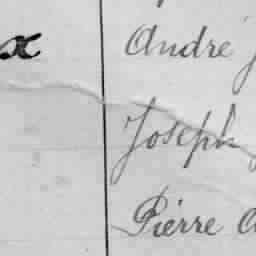 x André
Joseph
Pierre